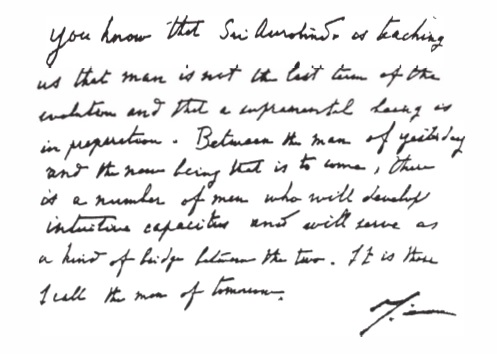 You know that Sri Aurobindo is teaching
us that man is not the last term of the
evolution and that a supramental being is
in preparation. Between the man of yesterday
and the new being that is to come, there
is a number of men who will develop
intuitive capacities and will serve as
a kind of bridge between the two. It is these
I call the man of tomorrow.